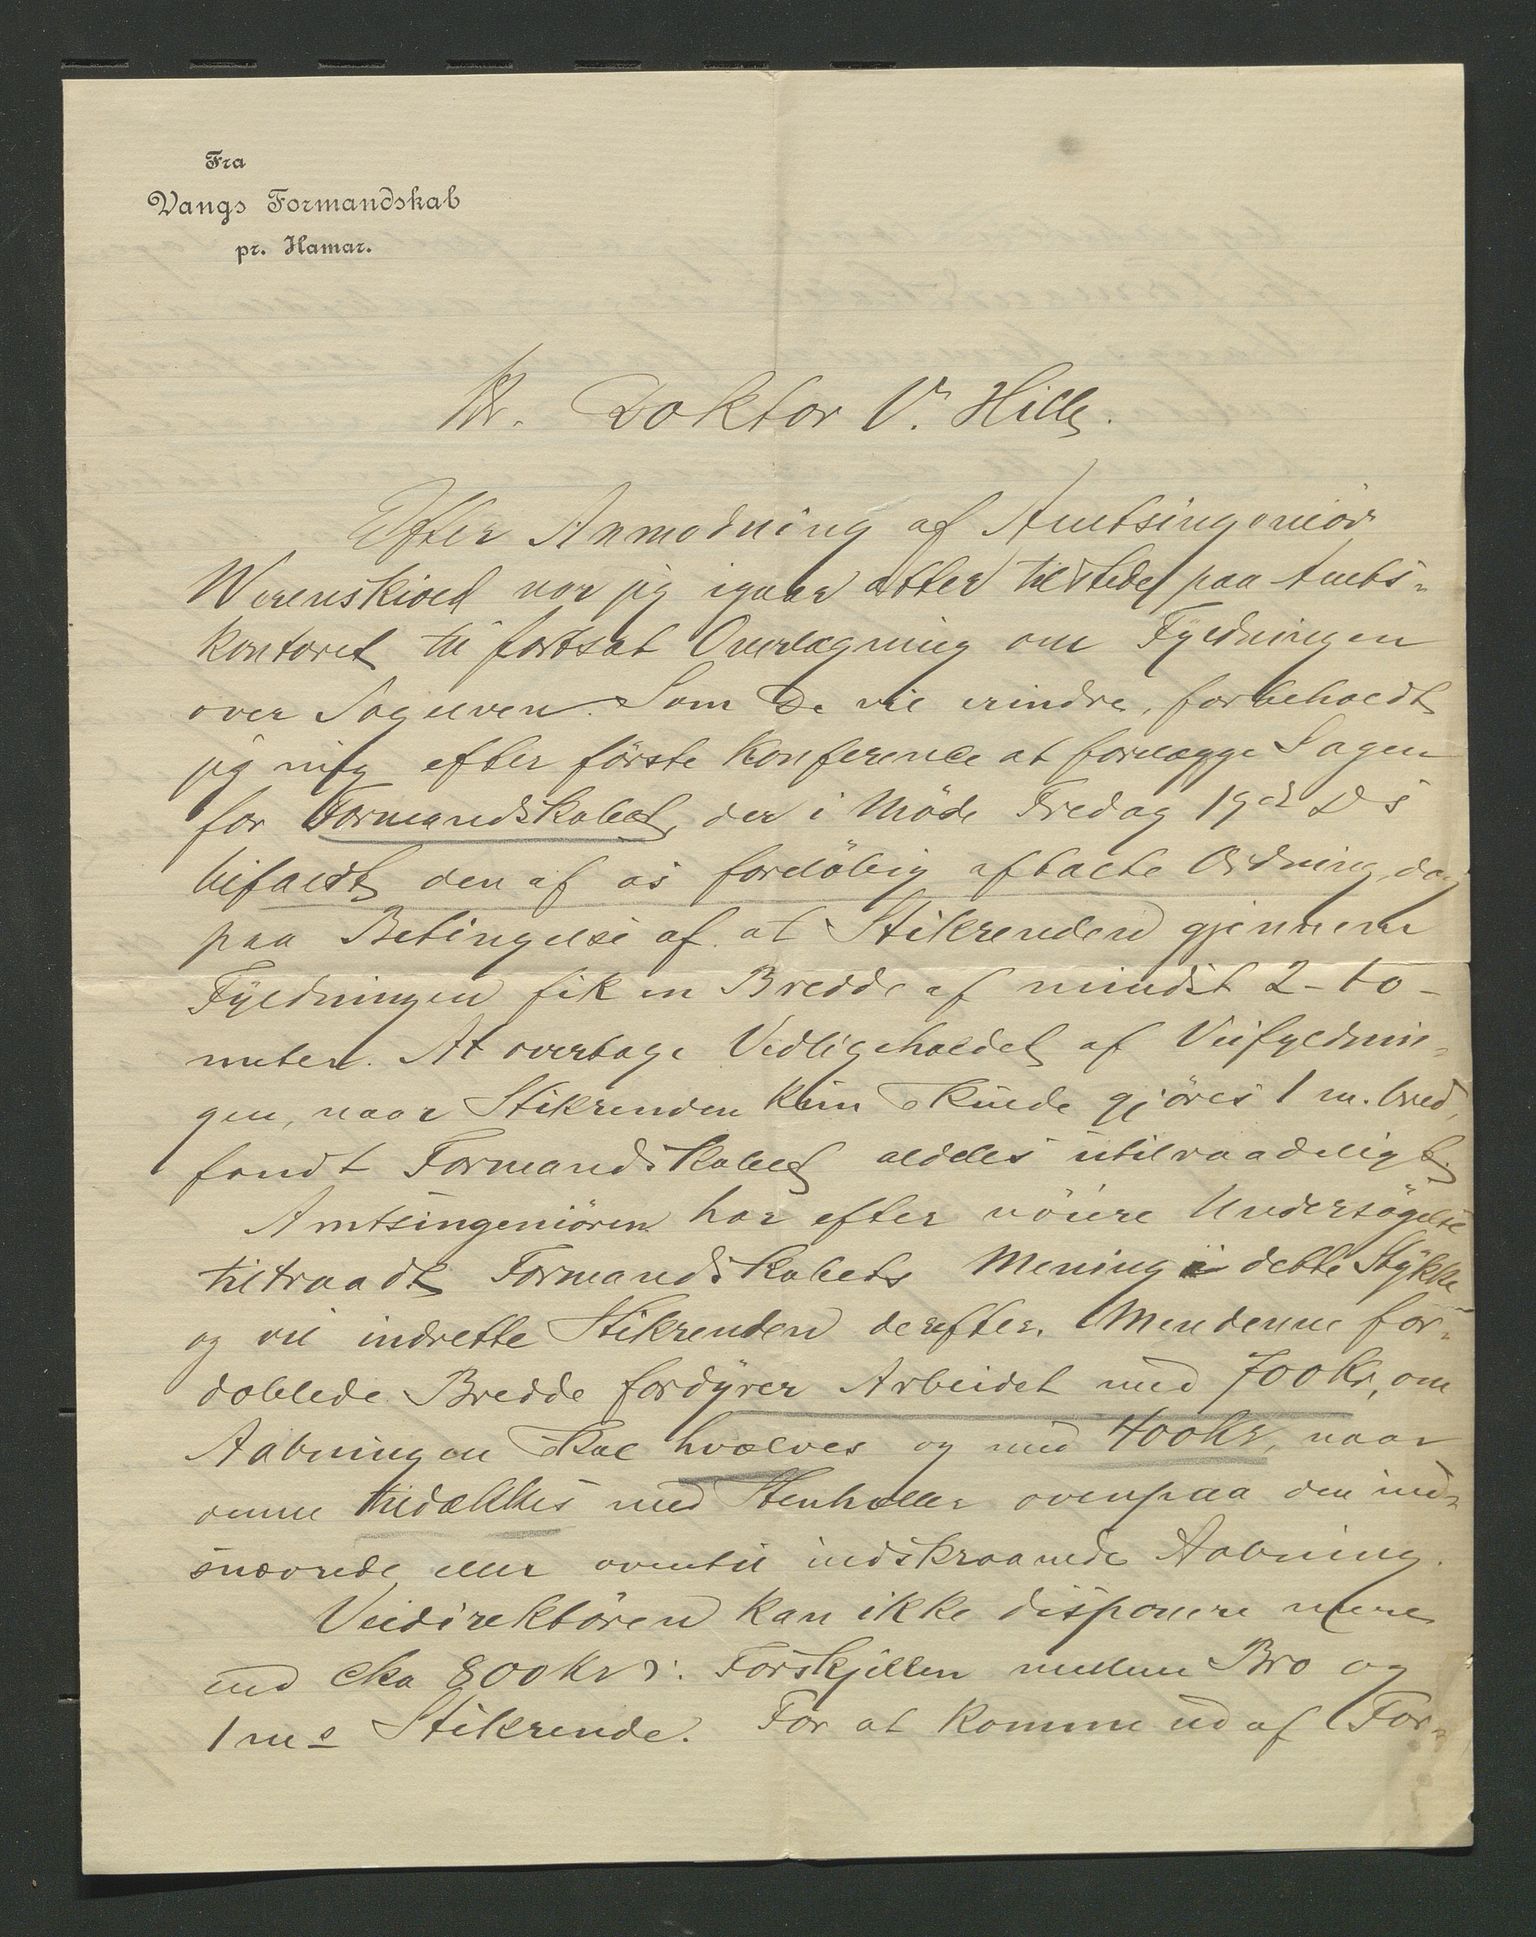 Fra
Vangs Formandskab
pr. Hamar.
Hr. Doktor V. Hille.
Efter Anmodning af Amtsingeniör
Werenskiold var jeg igaar atter tilstede paa Amts-
kontoret til fortsat Overlægning om Fyldningen
over Sagelven. Som De vil erindre, forbeholdt
jeg mig efter förste Konference at forelægge Sagen
for Formandskabet, der i Möde Fredag 19de Ds
bifaldt den af os forelöbig aftalte Ordning, dog
paa Betingelse af at Stikrenden gjennem
Fyldningen fik en Bredde af mindst 2 - to -
meter. At overtage Vedligeholdet af Veifyldnin-
gen, naar Stikrenden kun skulde gjöres 1 m. bred,
fandt Formandskabet aldeles utilraadeligt.
Amtsingeniören har efter nöiere Undersögelse
tiltraadt Formandskabets Mening i dette Stykke
og vil indrette Stikrenden derefter. Men denne for-
doblede Bredde fordyrer Arbeidet med 700 Kr, om
Aabningen skal hvælves og med 400 Kr, naar
denne tildækkes med Stenheller ovenpaa den ind-
snævrede eller oventil indskraanede Aabning.
Veidirektören kan ikke disponere mere
end cka 800 Kr ɔ: Forskjellen mellem Bro og
1 ms Stikrende. For at komme ud af For-